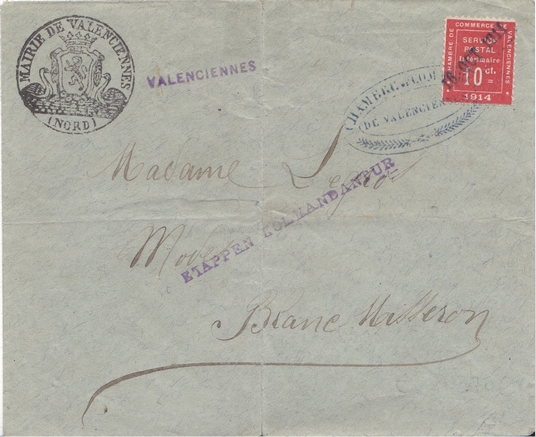 MAIRIE DE VALENCIENNES
(NORD)
VALENCIENNES
CHAMBRE DE COMMERCE DE VALENCIENNES
SERVICE
POSTAL
10 ct.
1914
CHAMBRE COM
(DE VALENCIEN
Madame
ETAPPEN KOMMANDANTUR
Blanc Masseron